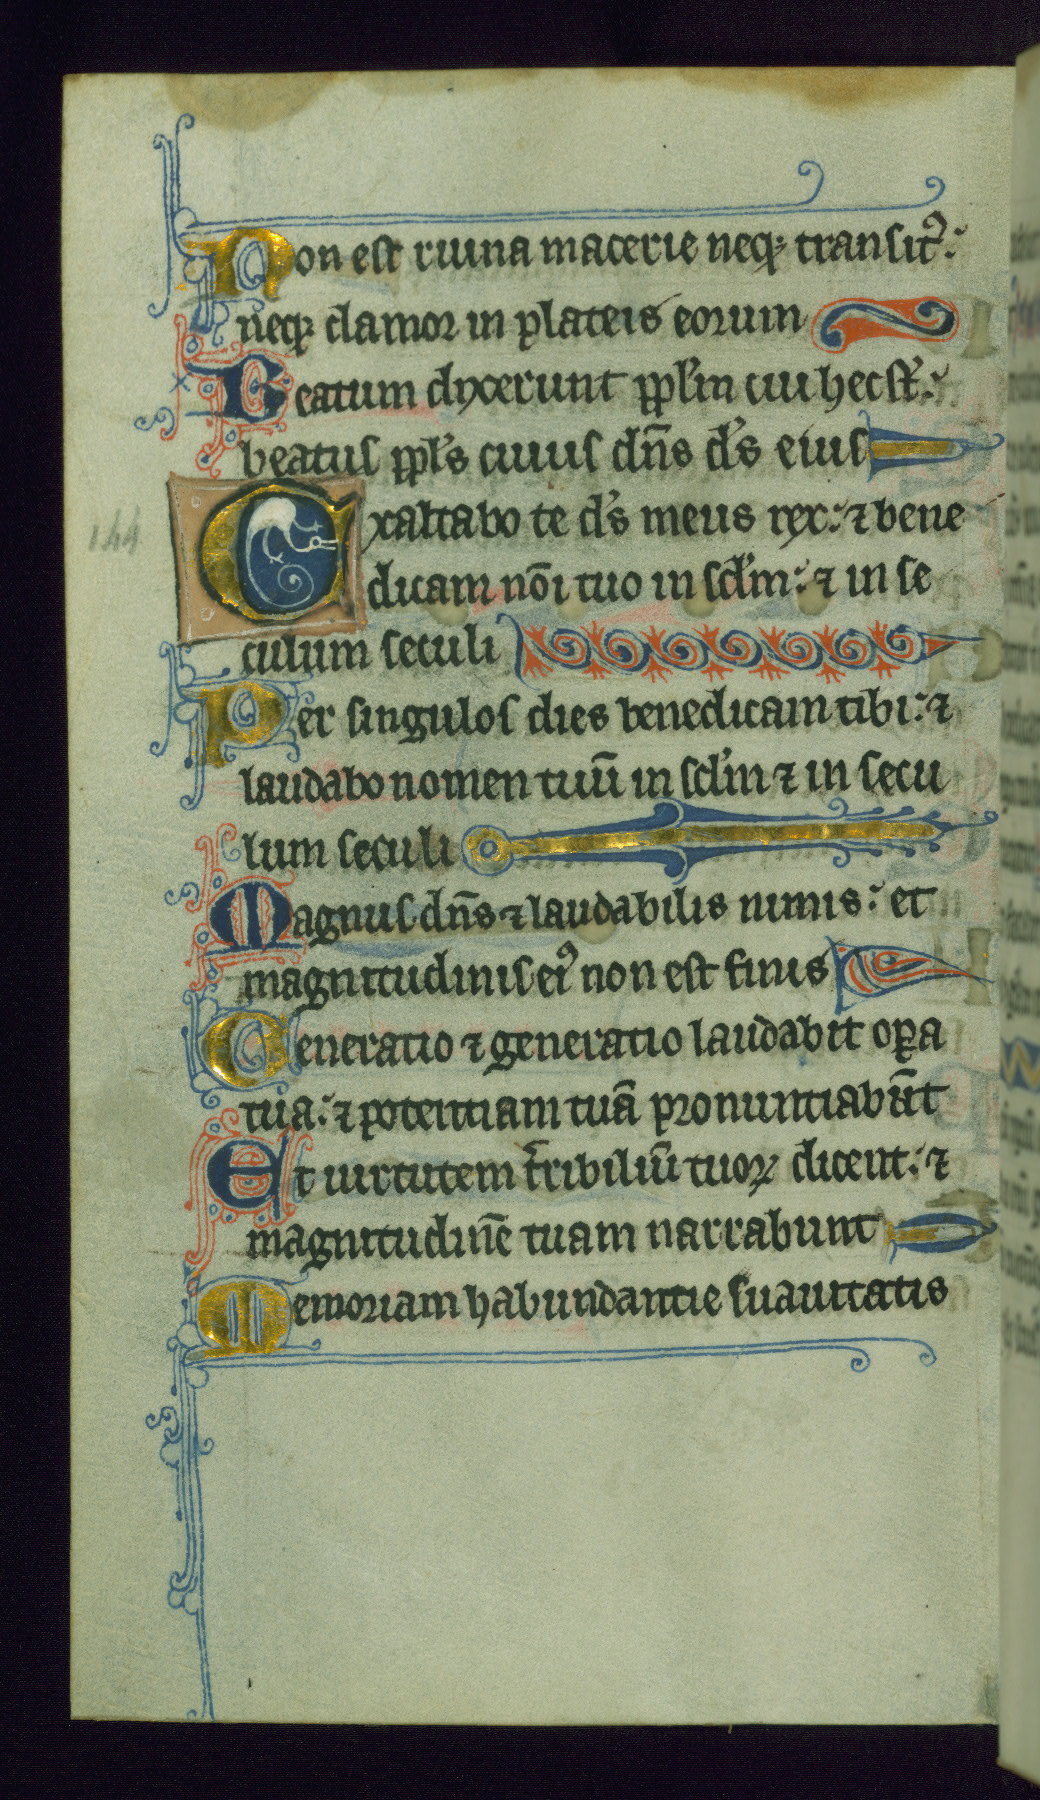 Non est ruina macerie neqꝫ transitꝰ:
neqꝫ clamor in plateis eorum
Beatum dixerunt ppl'm cui hec st̄:
beatus ppl's cuius dn̄s d's eius
Exaltabo te d's meus rex: ⁊ bene
dicam nōi tuo in scl'm: ⁊ in se
culum seculi
144
Per singulos dies benedicam tibi: ⁊
laudabo nomen tuū in scl'm ⁊ in secu
lum seculi
Magnus dn̄s ⁊ laudabilis nimis: et
magnitudinis eiꝰ non est finis
Generatio ⁊ generatio laudabit oꝑa
tua: ⁊ potentiam tuā pronuntiabūt
Et uirtutem t̄ribiliū tuoꝝ dicent: ⁊
magnitudinē tuam narrabunt
Memoriam habundantie suauitatis